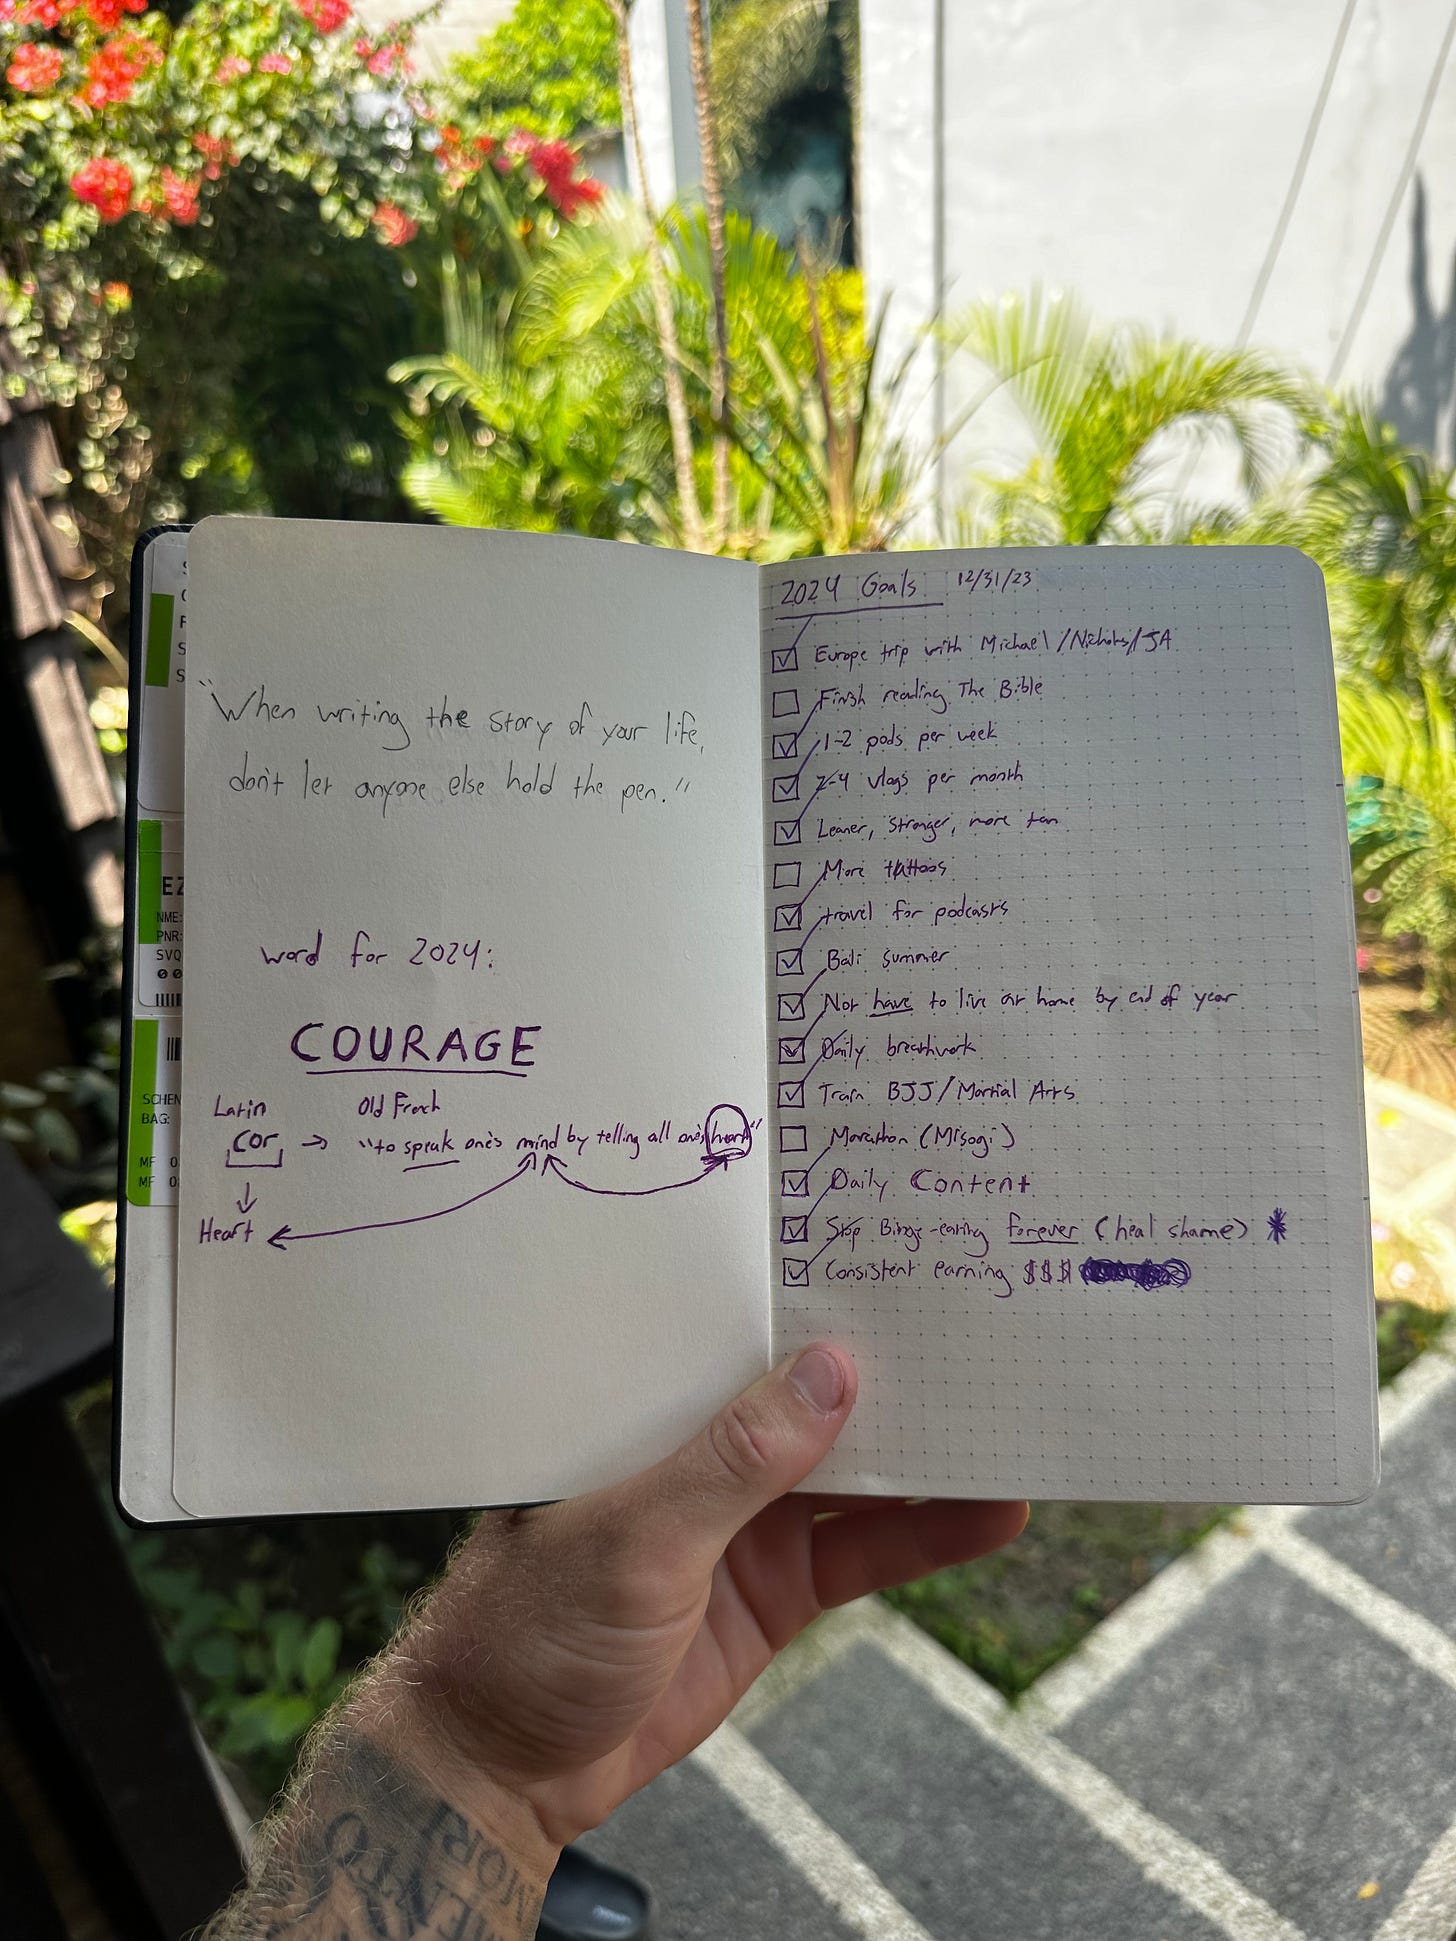 "When writing the story of your life,
don't let anyone else hold the pen."
word for 2024:
COURAGE
Latin
Old French
cor → "to speak one's mind by telling all one's heart"
Heart
EZ
NME:
PNR:
SVQ
00
SCHEN
BAG:
MF 0
MF 0
2024 Goals 12/31/23
Europe trip with Michael/Nicholas/JA
Finish reading The Bible
1-2 pods per week
2-4 vlogs per month
Leaner, stronger, more tan
More tattoos
travel for podcasts
Bali summer
Not have to live at home by end of year
Daily breathwork
Train BJJ/Martial Arts
Marathon (Misogi)
Daily Content
Stop Binge-eating forever (heal shame) *
Consistent earning $$$
MEMENTO
MORI